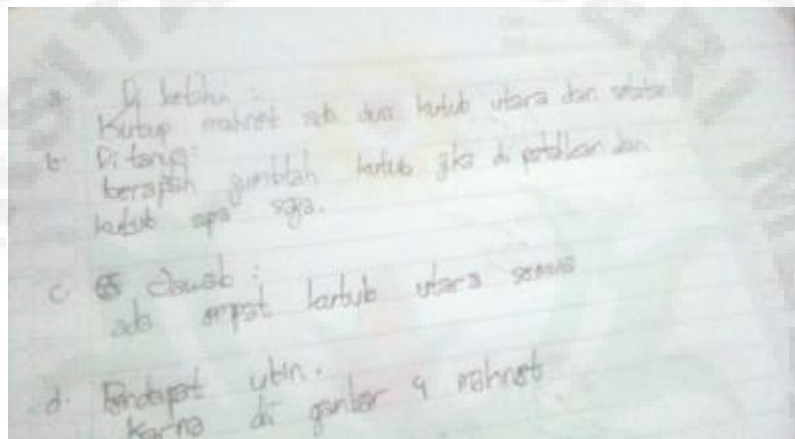 a. Di ketahu :
Kutup mahnet ada dua kutub utara dan selatan
b. Di tanya:
berapah jumblah kutub jika di patahkan dan
kutub apa saja.
c. Jawab :
ada empat kartub utara semua
d. Pendapat ubin.
Karna di gambar 4 mahnet